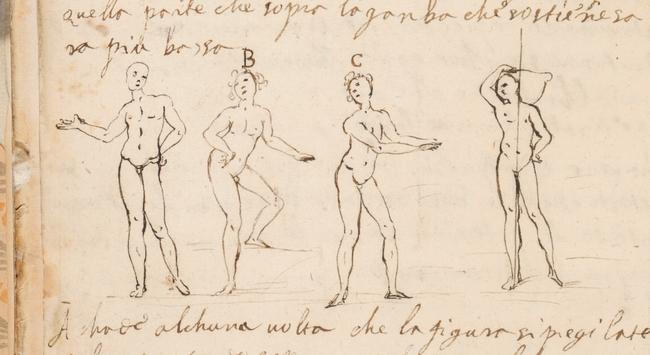 quella parte che sopra la ganba che sostiene sa
ra più bassa
B C
alchuna volta che la figura si piegi